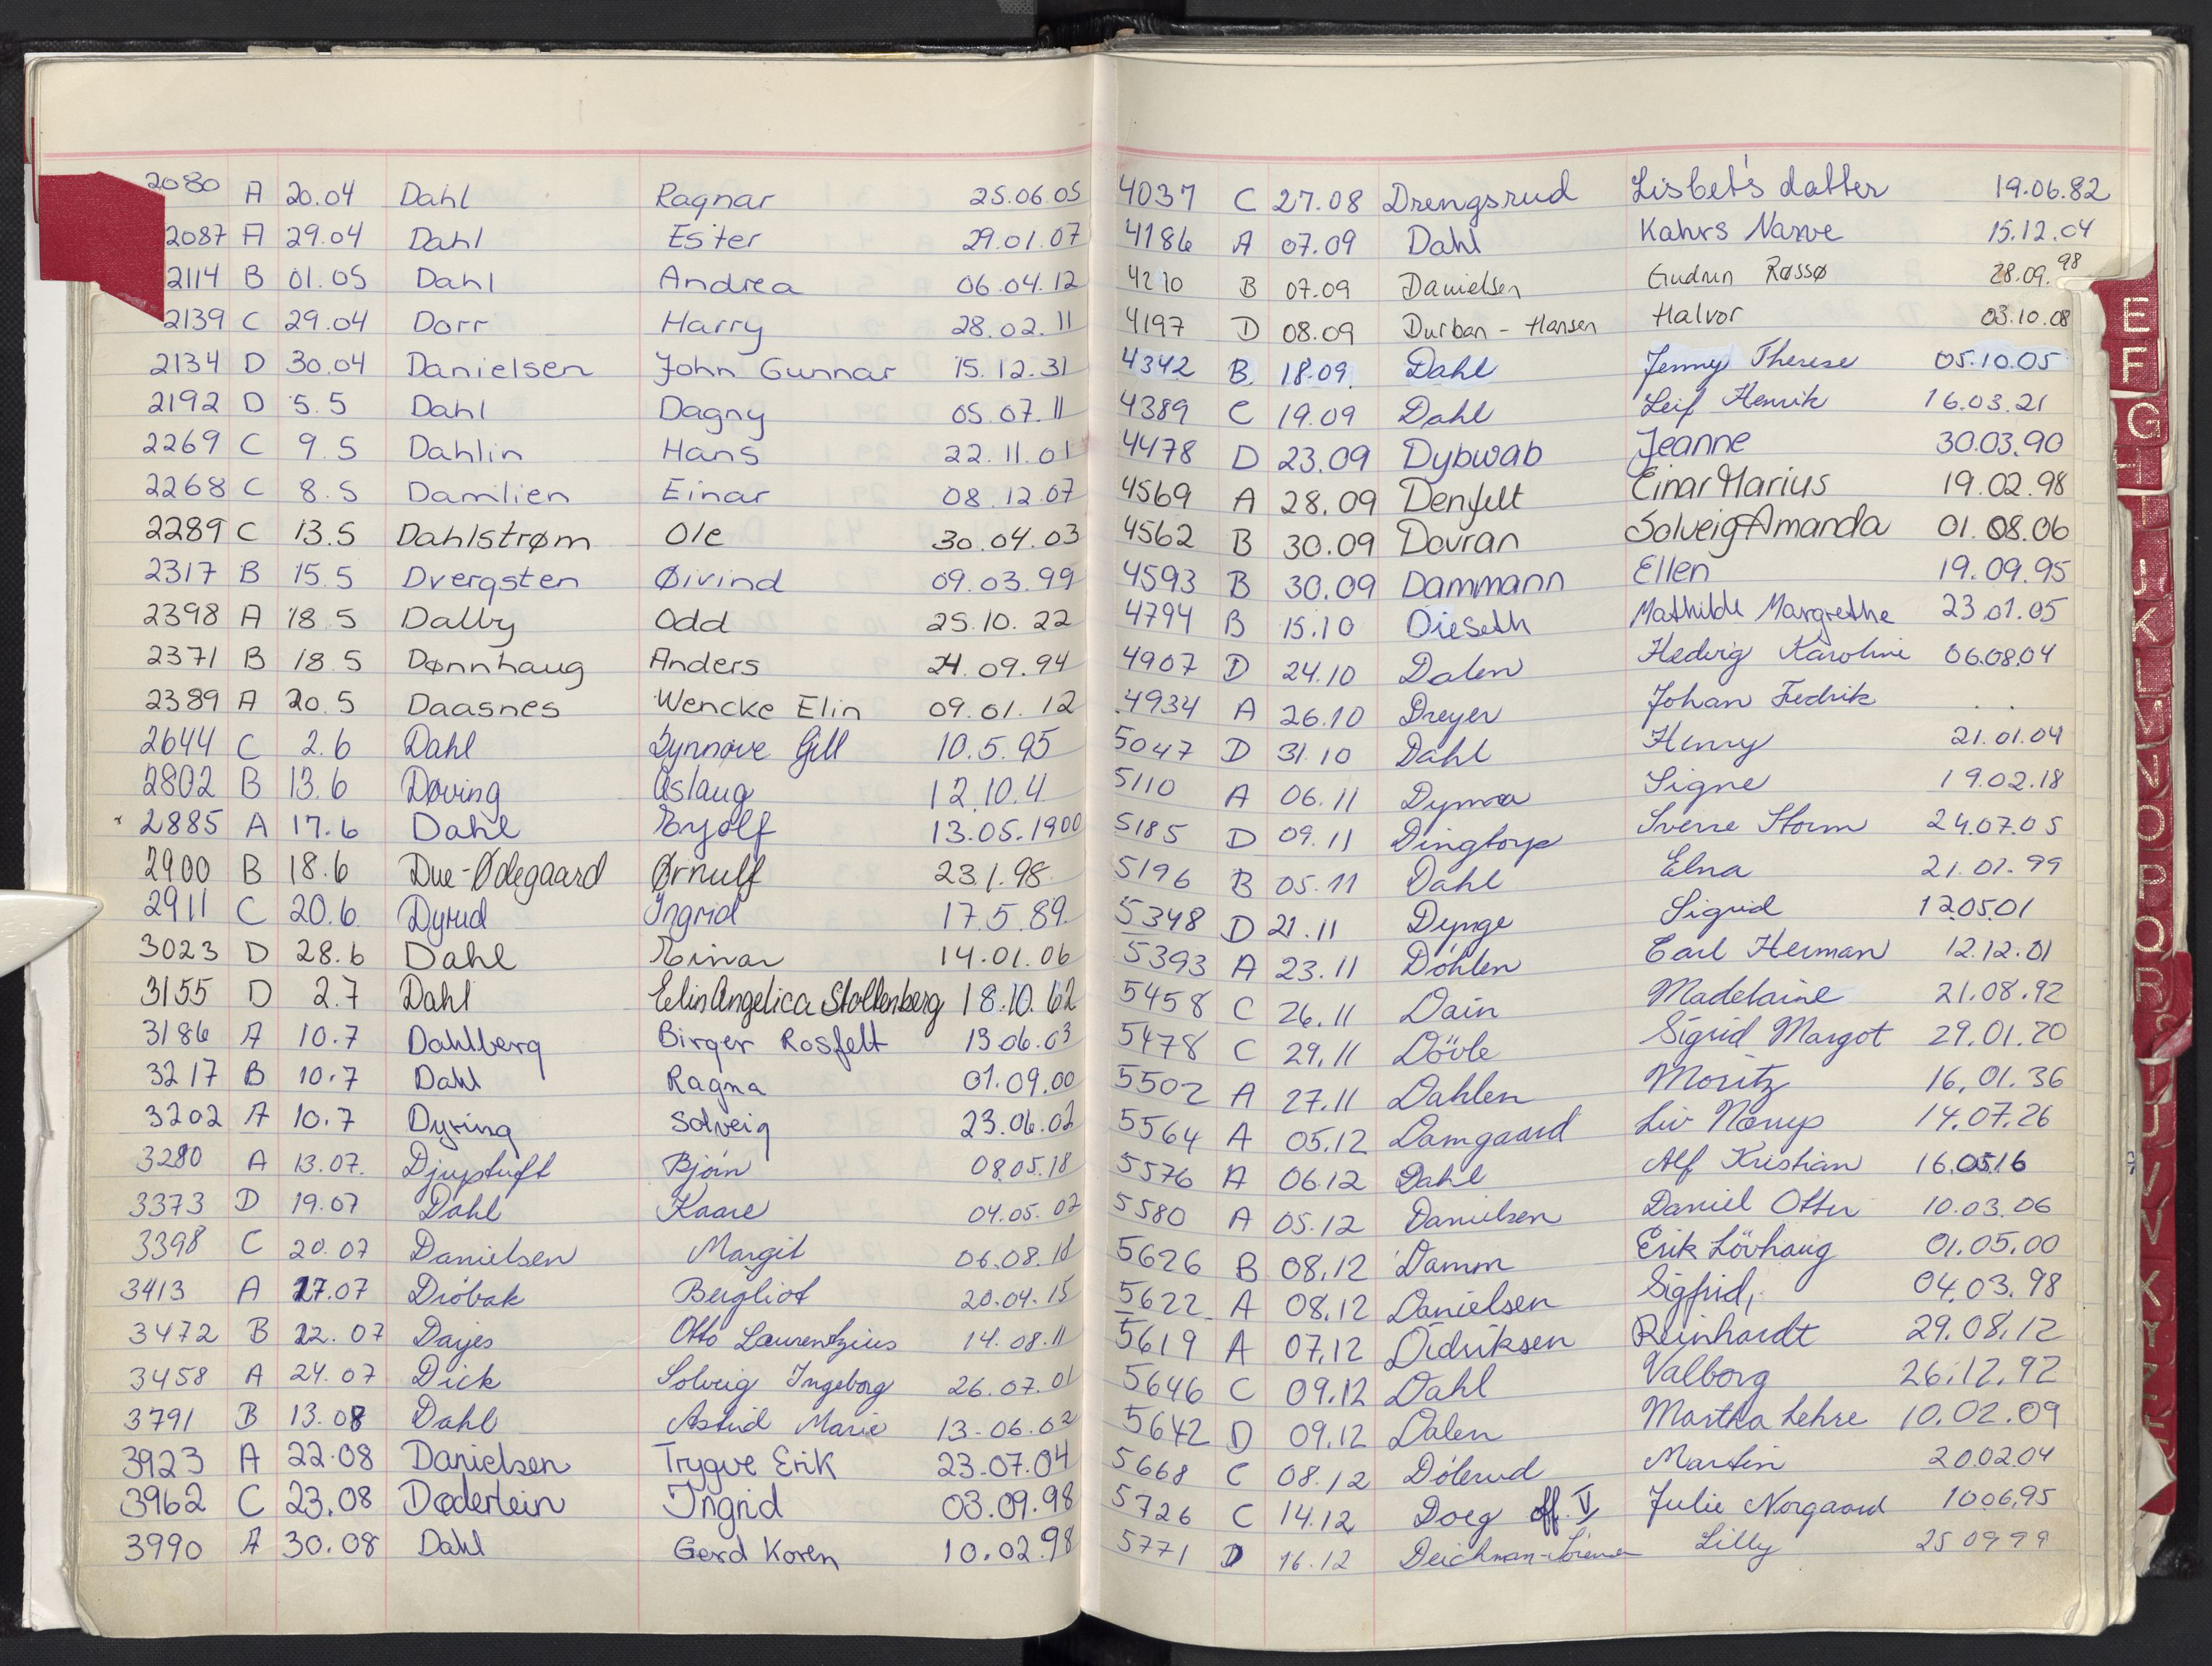 2080 A 20.04 Dahl Ragnar 25.06.05
2087 A 29.04 Dahl Ester 29.01.07
2114 B 01.05 Dahl Andrea 06.04.12
2139 C 29.04 Dorr Harry 28.02.11
2134 D 30.04 Danielsen John Gunnar 15.12.31
2192 D 5.5 Dahl Dagny 05.07.11
2269 C 9.5 Dahlin Hans 22.11.01
2268 C 8.5 Damlien Einar 08.12.07
2289 C 13.5 Dahlstrøm Ole 30.04.03
2317 B 15.5 Dvergsten Øivind 09.03.99
2398 A 18.5 Dalby Odd 25.10.22
2371 B 18.5 Dønnhaug Anders 24.09.94
2389 A 20.5 Daasnes Wencke Elin 09.01.12
2644 C 2.6 Dahl Synnøve Gill 10.5.95
2802 B 13.6 Døving Aslaug 12.10.4
2885 A 17.6 Dahl Eyolf 13.05.1900
2900 B 18.6 Due-Ødegaard Ørnulf 23.1.98
2911 C 20.6 Dyrud Ingrid 17.5.89.
3023 D 28.6 Dahl Einar 14.01.06
3155 D 2.7 Dahl Elin Angelica Stoltenberg 18.10.62
3186 A 10.7 Dahlberg Birger Rosfelt 13.06.03
3217 B 10.7 Dahl Ragna 01.09.00
3202 A 10.7 Dyring Solveig 23.06.02
3280 A 13.07. Djuptuft Bjørn 08.05.18
3373 D 19.07 Dahl Kaare 04.05.02
3398 C 20.07 Danielsen Margit 06.08.18
3413 A 17.07 Dröbak Bergliot 20.04.15
3472 B 22.07 Dajes Otto Laurentzius 14.08.11
3458 A 24.07 Dick Solveig Ingeborg 26.07.01
3791 B 13.08 Dahl Astrid Marie 13-06.02
3923 A 22.08 Danielsen Trygve Erik 23-07.04
3962 C 23.08 Døderlein Ingrid 03.09.98
3990 A 30.08 Dahl Gerd Koren 10.02.98
4037 C 27.08 Drengsrud Lisbet's datter 19.06.82
4186 A 07.09 Dahl Kahrs Narve 15.12.04
4210 B 07.09 Danielsen Gudrun Røssø 28.09.98
4197 D 08.09 Durban-Hansen Halvor 03.10.08
4342 B. 18.09. Dahl Jenny Therese 05.10.05
4389 C 19.09 Dahl Leif Henrik 16.03.21
4478 D 23.09 Dybwab Jeanne 30.03.90
4569 A 28.09 Denfelt Einar Marius 19.02.98
4562 B 30.09 Dovran Solveig Amanda 01.08.06
4593 B 30.09 Dammann Ellen 19.09.95
4794 B 15.10 Dieseth Mathilde Margrethe 23.01.05
4907 D 24.10 Dalen Hedvig Karoline 06.08.04
4934 A 26.10 Dreyer Johan Fredrik . .
5047 D 31.10 Dahl Henry 21.01.04
5110 A 06.11 Signe 19.02.18
5185 D 09.11 Dingtorp Sverre Storm 24.07.05
5196 B 05.11 Dahl Elna 21.01.99
5348 D 21.11 Dynge Sigrid 12.05.01
5393 A 23.11 Döhlen Carl Herman 12.12.01
5458 C 26.11 Dain Madelaine 21.08.92
5478 C 29.11 Dövle Sigrid Margot 29.01.20
5502 A 27.11 Dahlen Moritz 16.01.36
5564 A 05.12 Damgaard Liv Nørup 14.07.26
5576 A 06.12 Dahl Alf Kristian 16.05.16
5580 A 05.12 Danielsen Daniel Otter 10.03.06
5626 B 08.12 Damm Erik Lövhaug 01.05.00
5622 A 08.12 Danielsen Sigfrid, 04.03.98
5619 A 07.12 Didriksen Reinhardt 29.08.12
5646 C 09.12 Dahl Valborg 26.12.92
5642 D 09.12 Dalen Martha Lehre 10.02.09
5668 C 08.12 Dölerud Martin 20.02.04
5726 C 14.12 Doeg off. V, Julie Norgaard 10.06.95
5771 D 16.12 Deichman-Sörensen Lilly 25 09 99
E
F
G
H
I
J
K
L
M
N
O
P
Q
R